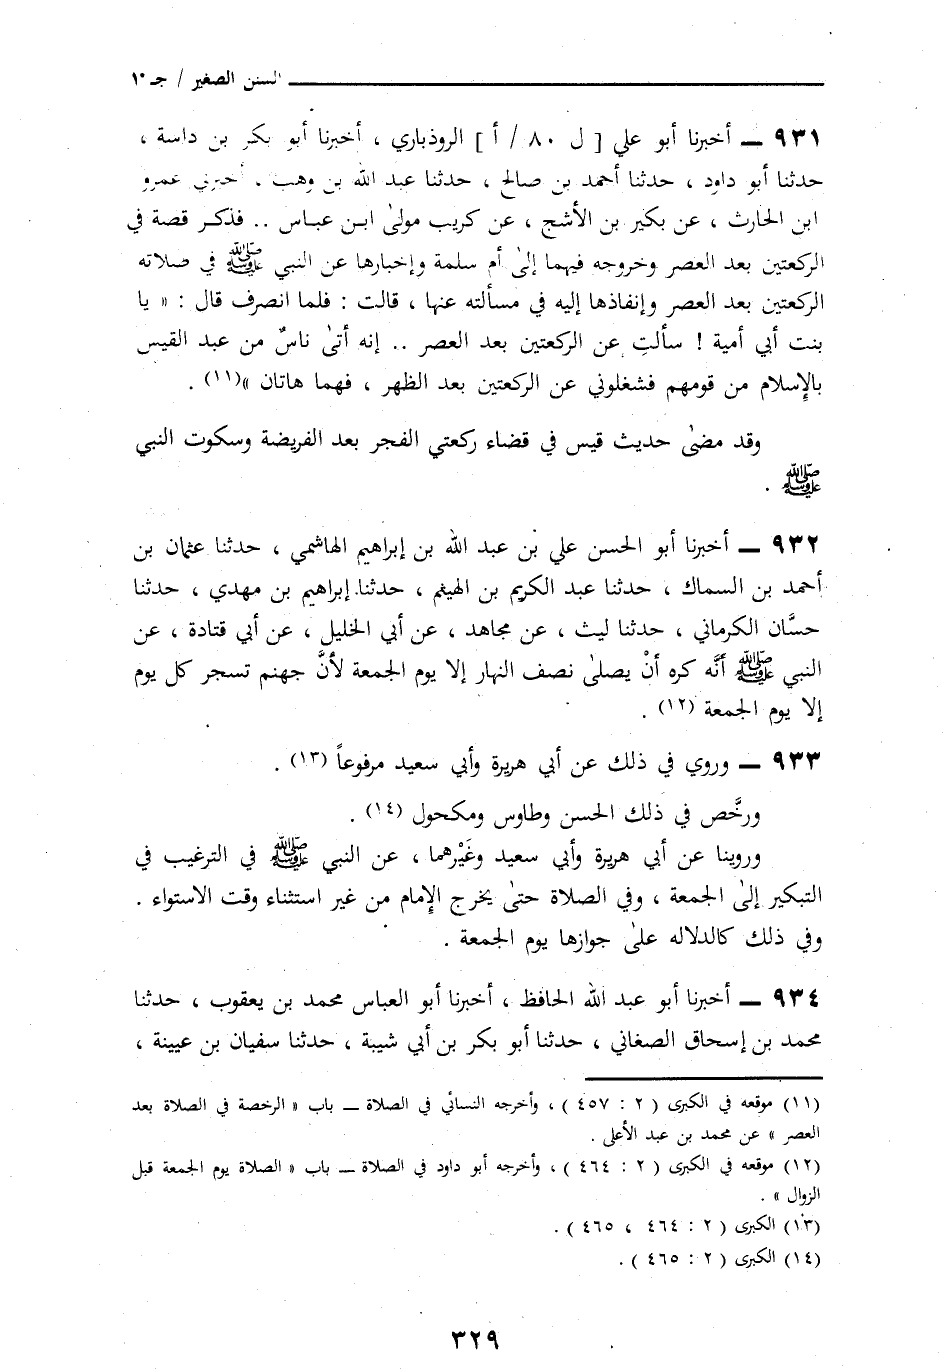 السنن الصغير / جـ ١٠
٩٣١ ــ أخبرنا أبو علي [ ل ٨٠ / أ ] الروذباري ، أخبرنا أبو بكر بن داسة ،
حدثنا أبو داود ، حدثنا أحمد بن صالح ، حدثنا عبد الله بن وهب . أخبرني عمرو
ابن الحارث ، عن بكير بن الأشج ، عن كريب مولىٰ ابن عباس .. فذكر قصة في
الركعتين بعد العصر وخروجه فيهما إلىٰ أم سلمة وإخبارها عن النبي ﷺ في صلاته
الركعتين بعد العصر وإنفاذها إليه في مسألته عنها ، قالت : فلما انصرف قال : « يا
بنت أبي أمية ! سألتِ عن الركعتين بعد العصر .. إنه أتىٰ ناسٌ من عبد القيس
بالإسلام من قومهم فشغلوني عن الركعتين بعد الظهر ، فهما هاتان »(١١) .
وقد مضىٰ حديث قيس في قضاء ركعتي الفجر بعد الفريضة وسكوت النبي
ﷺ .
٩٣٢ ــ أخبرنا أبو الحسن علي بن عبد الله بن إبراهيم الهاشمي ، حدثنا عثمان بن
أحمد بن السماك ، حدثنا عبد الكريم بن الهيثم ، حدثنا إبراهيم بن مهدي ، حدثنا
حسَّان الكرماني ، حدثنا ليث ، عن مجاهد ، عن أبي الخليل ، عن أبي قتادة ، عن
النبي ﷺ أنَّه كره أنْ يصلىٰ نصف النهار إلا يوم الجمعة لأنَّ جهنم تسجر كل يوم
إلا يوم الجمعة (١٢) .
٩٣٣ ــ وروي في ذلك عن أبي هريرة وأبي سعيد مرفوعاً (١٣) .
ورخَّص في ذلك الحسن وطاوس ومكحول (١٤) .
وروينا عن أبي هريرة وأبي سعيد وغَيْرهما ، عن النبي ﷺ في الترغيب في
التبكير إلىٰ الجمعة ، وفي الصلاة حتىٰ يخرج الإمام من غير استثناء وقت الاستواء .
وفي ذلك كالدلاله علىٰ جوازها يوم الجمعة .
٩٣٤ ــ أخبرنا أبو عبد الله الحافظ ، أخبرنا أبو العباس محمد بن يعقوب ، حدثنا
محمد بن إسحاق الصغاني ، حدثنا أبو بكر بن أبي شيبة ، حدثنا سفيان بن عيينة ،
(١١) موقعه في الكبرى ( ٢ : ٤٥٧ ) ، وأخرجه النسائي في الصلاة ــ باب « الرخصة في الصلاة بعد
العصر » عن محمد بن عبد الأعلى .
(١٢) موقعه في الكبرى ( ٢ : ٤٦٤ ) ، وأخرجه أبو داود في الصلاة ــ باب « الصلاة يوم الجمعة قبل
الزوال » .
(١٣) الكبرى ( ٢ : ٤٦٤ ، ٤٦٥ ) .
(١٤) الكبرى ( ٢ : ٤٦٥ ) .
٣٢٩